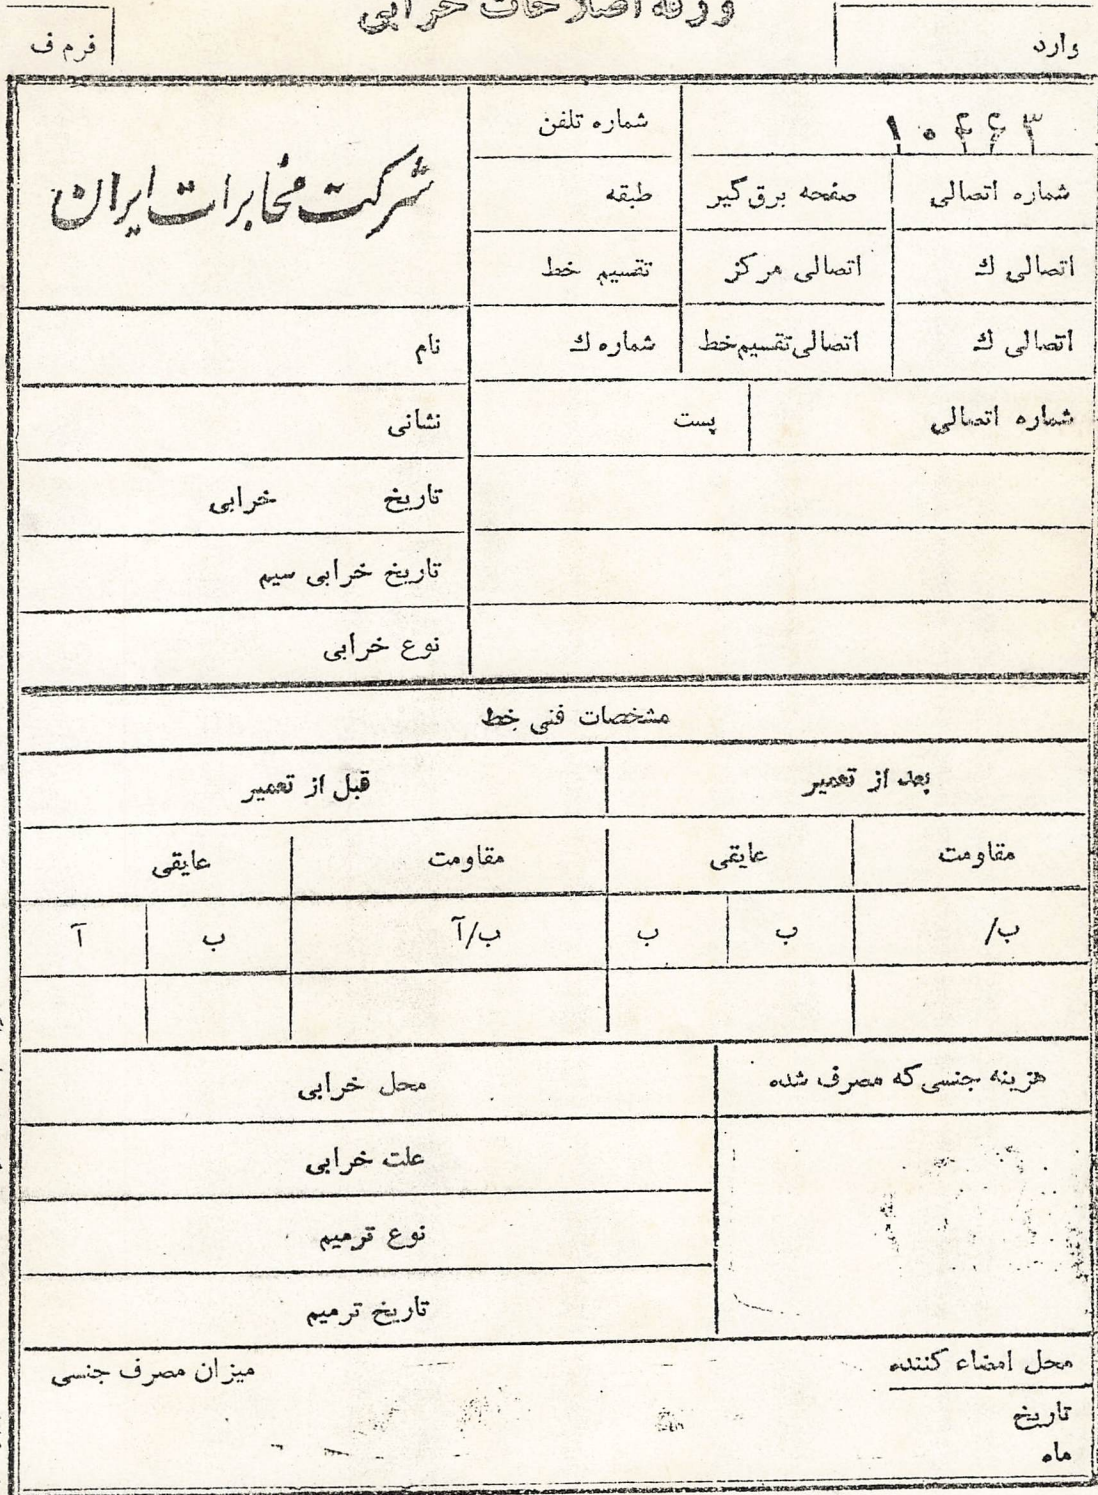 ورقه اصلاحات خرابی
وارد
فرم ف
شماره تلفن
شرکت مخابرات ایران
شماره اتصالی
صفحه برق گیر
طبقه
اتصالی ك
اتصالی مرکز
تقسیم خط
اتصالی ك
اتصالی تقسیم خط
شماره ك
نام
شماره اتصالی
پست
نشانی
تاریخ خرابی
تاریخ خرابی سیم
نوع خرابی
مشخصات فنی خط
بعد از تعمیر
قبل از تعمیر
مقاومت
عایقی
مقاومت
عایقی
ب/
ب
ب
ب/آ
ب
آ
هزینه جنسی که مصرف شده
محل خرابی
علت خرابی
نوع ترمیم
تاریخ ترمیم
محل امضاء کننده
میزان مصرف جنسی
تاریخ
ماه